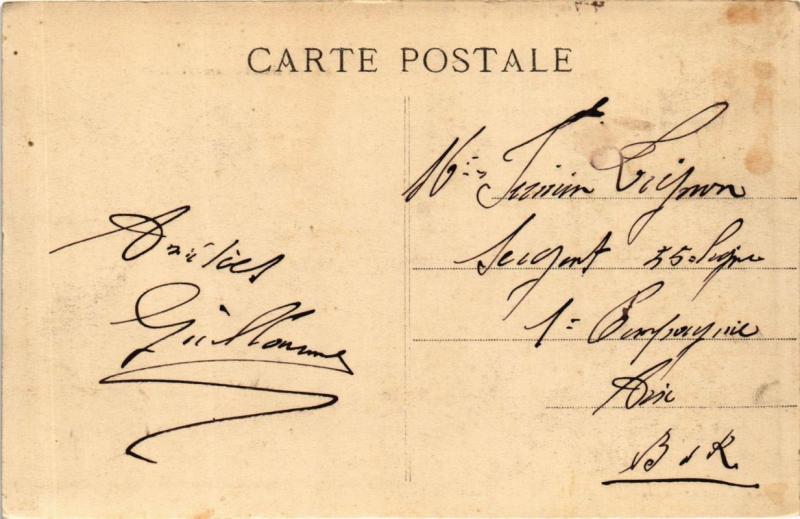 CARTE POSTALE
Amitiés
Guillaume
Sergent 55e Ligne
1e Compagnie
Aix
B d R